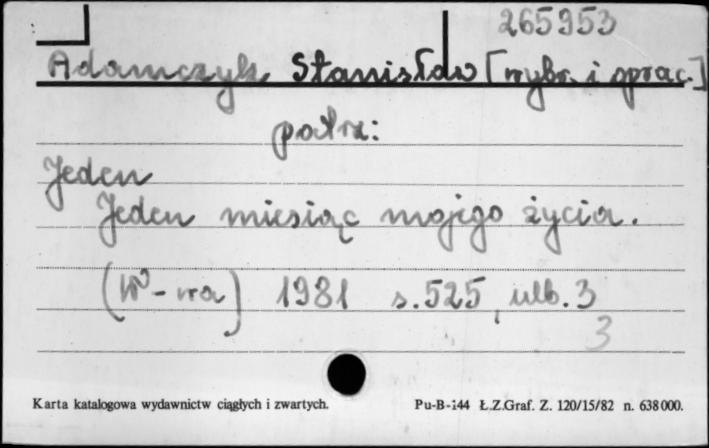 265953
Adamczyk, Stanisław [wybr. i oprac.]
patrz:
Jeden
Jeden miesiąc mojego życia.
(W-wa) 1981 s. 525, nlb. 3
3
Karta katalogowa wydawnictw ciągłych i zwartych. Pu-B-144 Ł.Z.Graf. Z. 120/15/82 n. 638000.